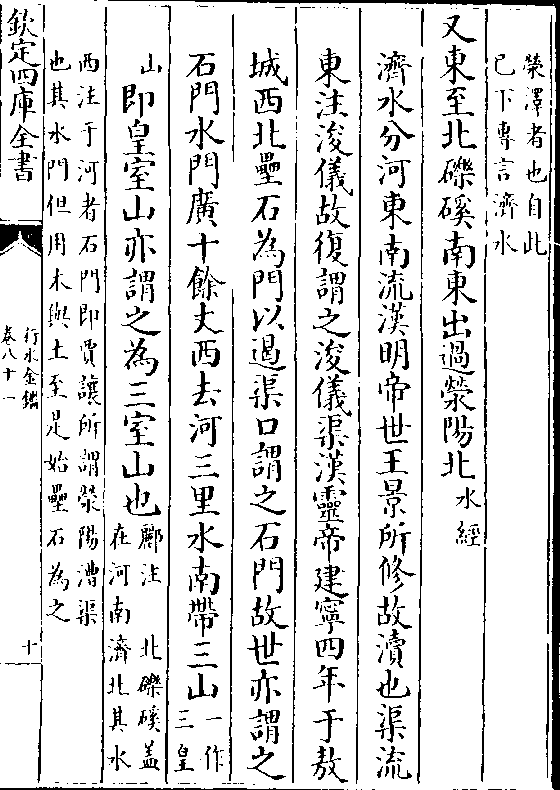 滎澤者也自此
已下專言濟水
又東至北礫磎南東出過滎陽北水經
濟水分河東南流漢明帝世王景所修故瀆也渠流
東注浚儀故復謂之浚儀渠漢靈帝建寧四年于敖
城西北壘石為門以遏渠口謂之石門故世亦謂之
石門水門廣十餘丈西去河三里水南帶三山一作
三皇
山即皇室山亦謂之為三室山也酈注 北礫磎盖
在河南濟北其水
西注于河者石門即賈讓所謂滎陽漕渠
也其水門但用木與土至是始壘石為之
欽定四庫全書
行水金鑑
卷八十一
十